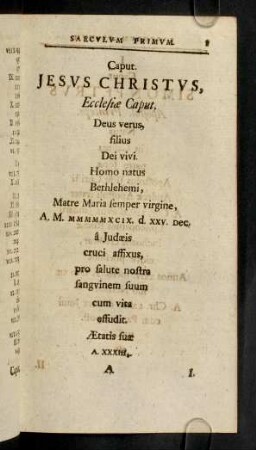 SAECVLVM PRIMVM.
Caput.
JESVS CHRISTVS,
Ecclesiæ Caput.
Deus verus,
filius
Dei vivi.
Homo natus
Bethlehemi,
Matre Maria semper virgine,
A. M. MMMMMXCIX. d. XXV. Dec,
â Judæis
cruci affixus,
pro salute nostra
sangvinem suum
cum vita
effudit.
Ætatis suæ
A. XXXIII.
A
I.